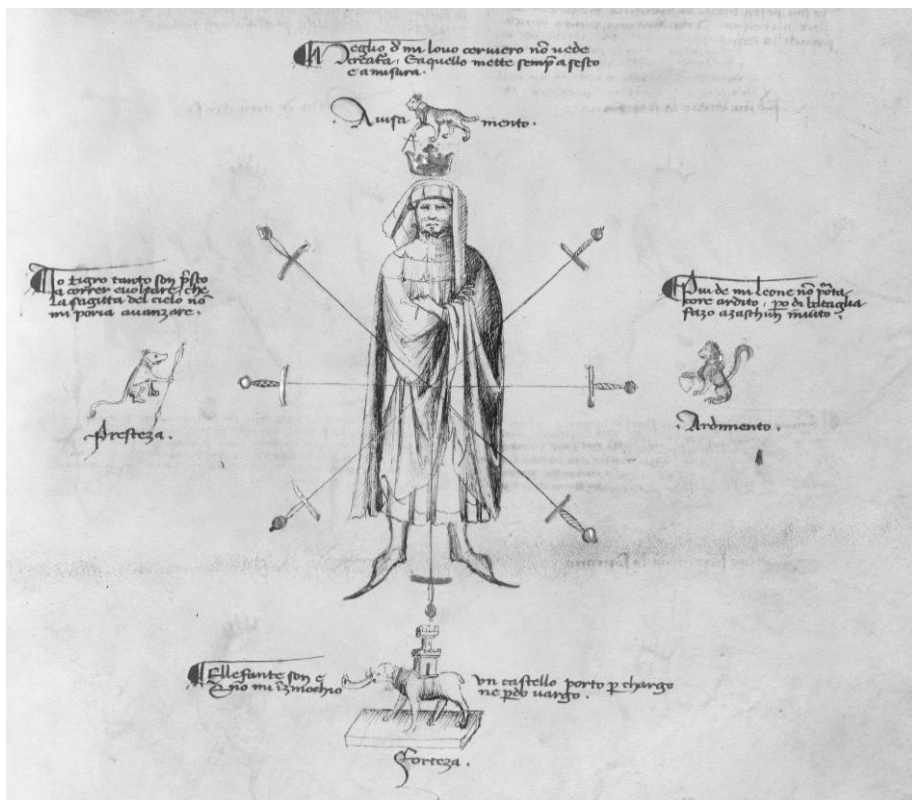 Meglio de mi lovo cervero nō vede
creatura, E aquello mette semp̄ a sesto
e a misura.
Avisamento.
Io tigro tanto son p̄sto
a correr e voltare, che
la sagitta del cielo nō
mi poria avanzare.
Presteza.
Piu de mi leone nō porta
core ardito, po di bataglia
fazo a zaschun invito.
Ardimento.
Ellefante son e
e nō mi inzinochio
un castello porto p chargo
ne p̄do vargo.
Forteza.